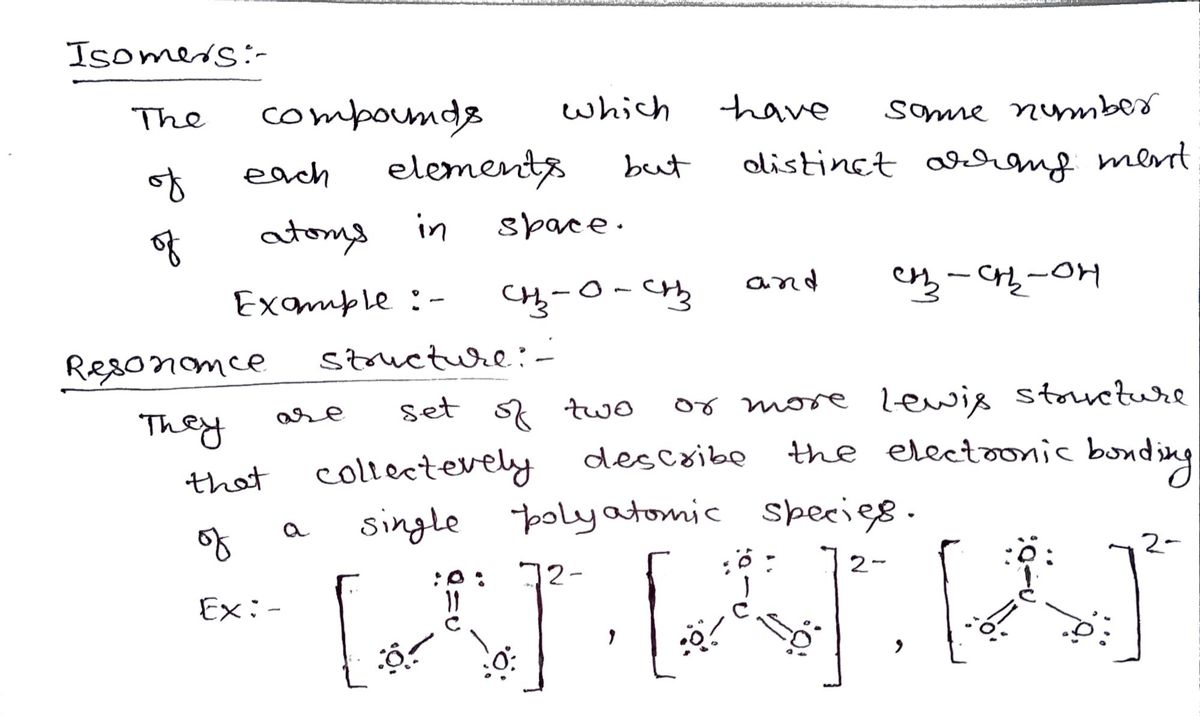 Isomers:-
The compounds which have same number
of each elements but distinct arrangment
of atoms in space.
Example :- CH₃-O-CH₃ and CH₃-CH₂-OH
Resonance structure:-
They are set of two or more Lewis structure
that collectevely describe the electronic bonding
of a single polyatomic species.
Ex:- [:O: || C :O: :O:]2- , [:O: | C :O: :O:]2- , [:O: | C :O: :O:]2-